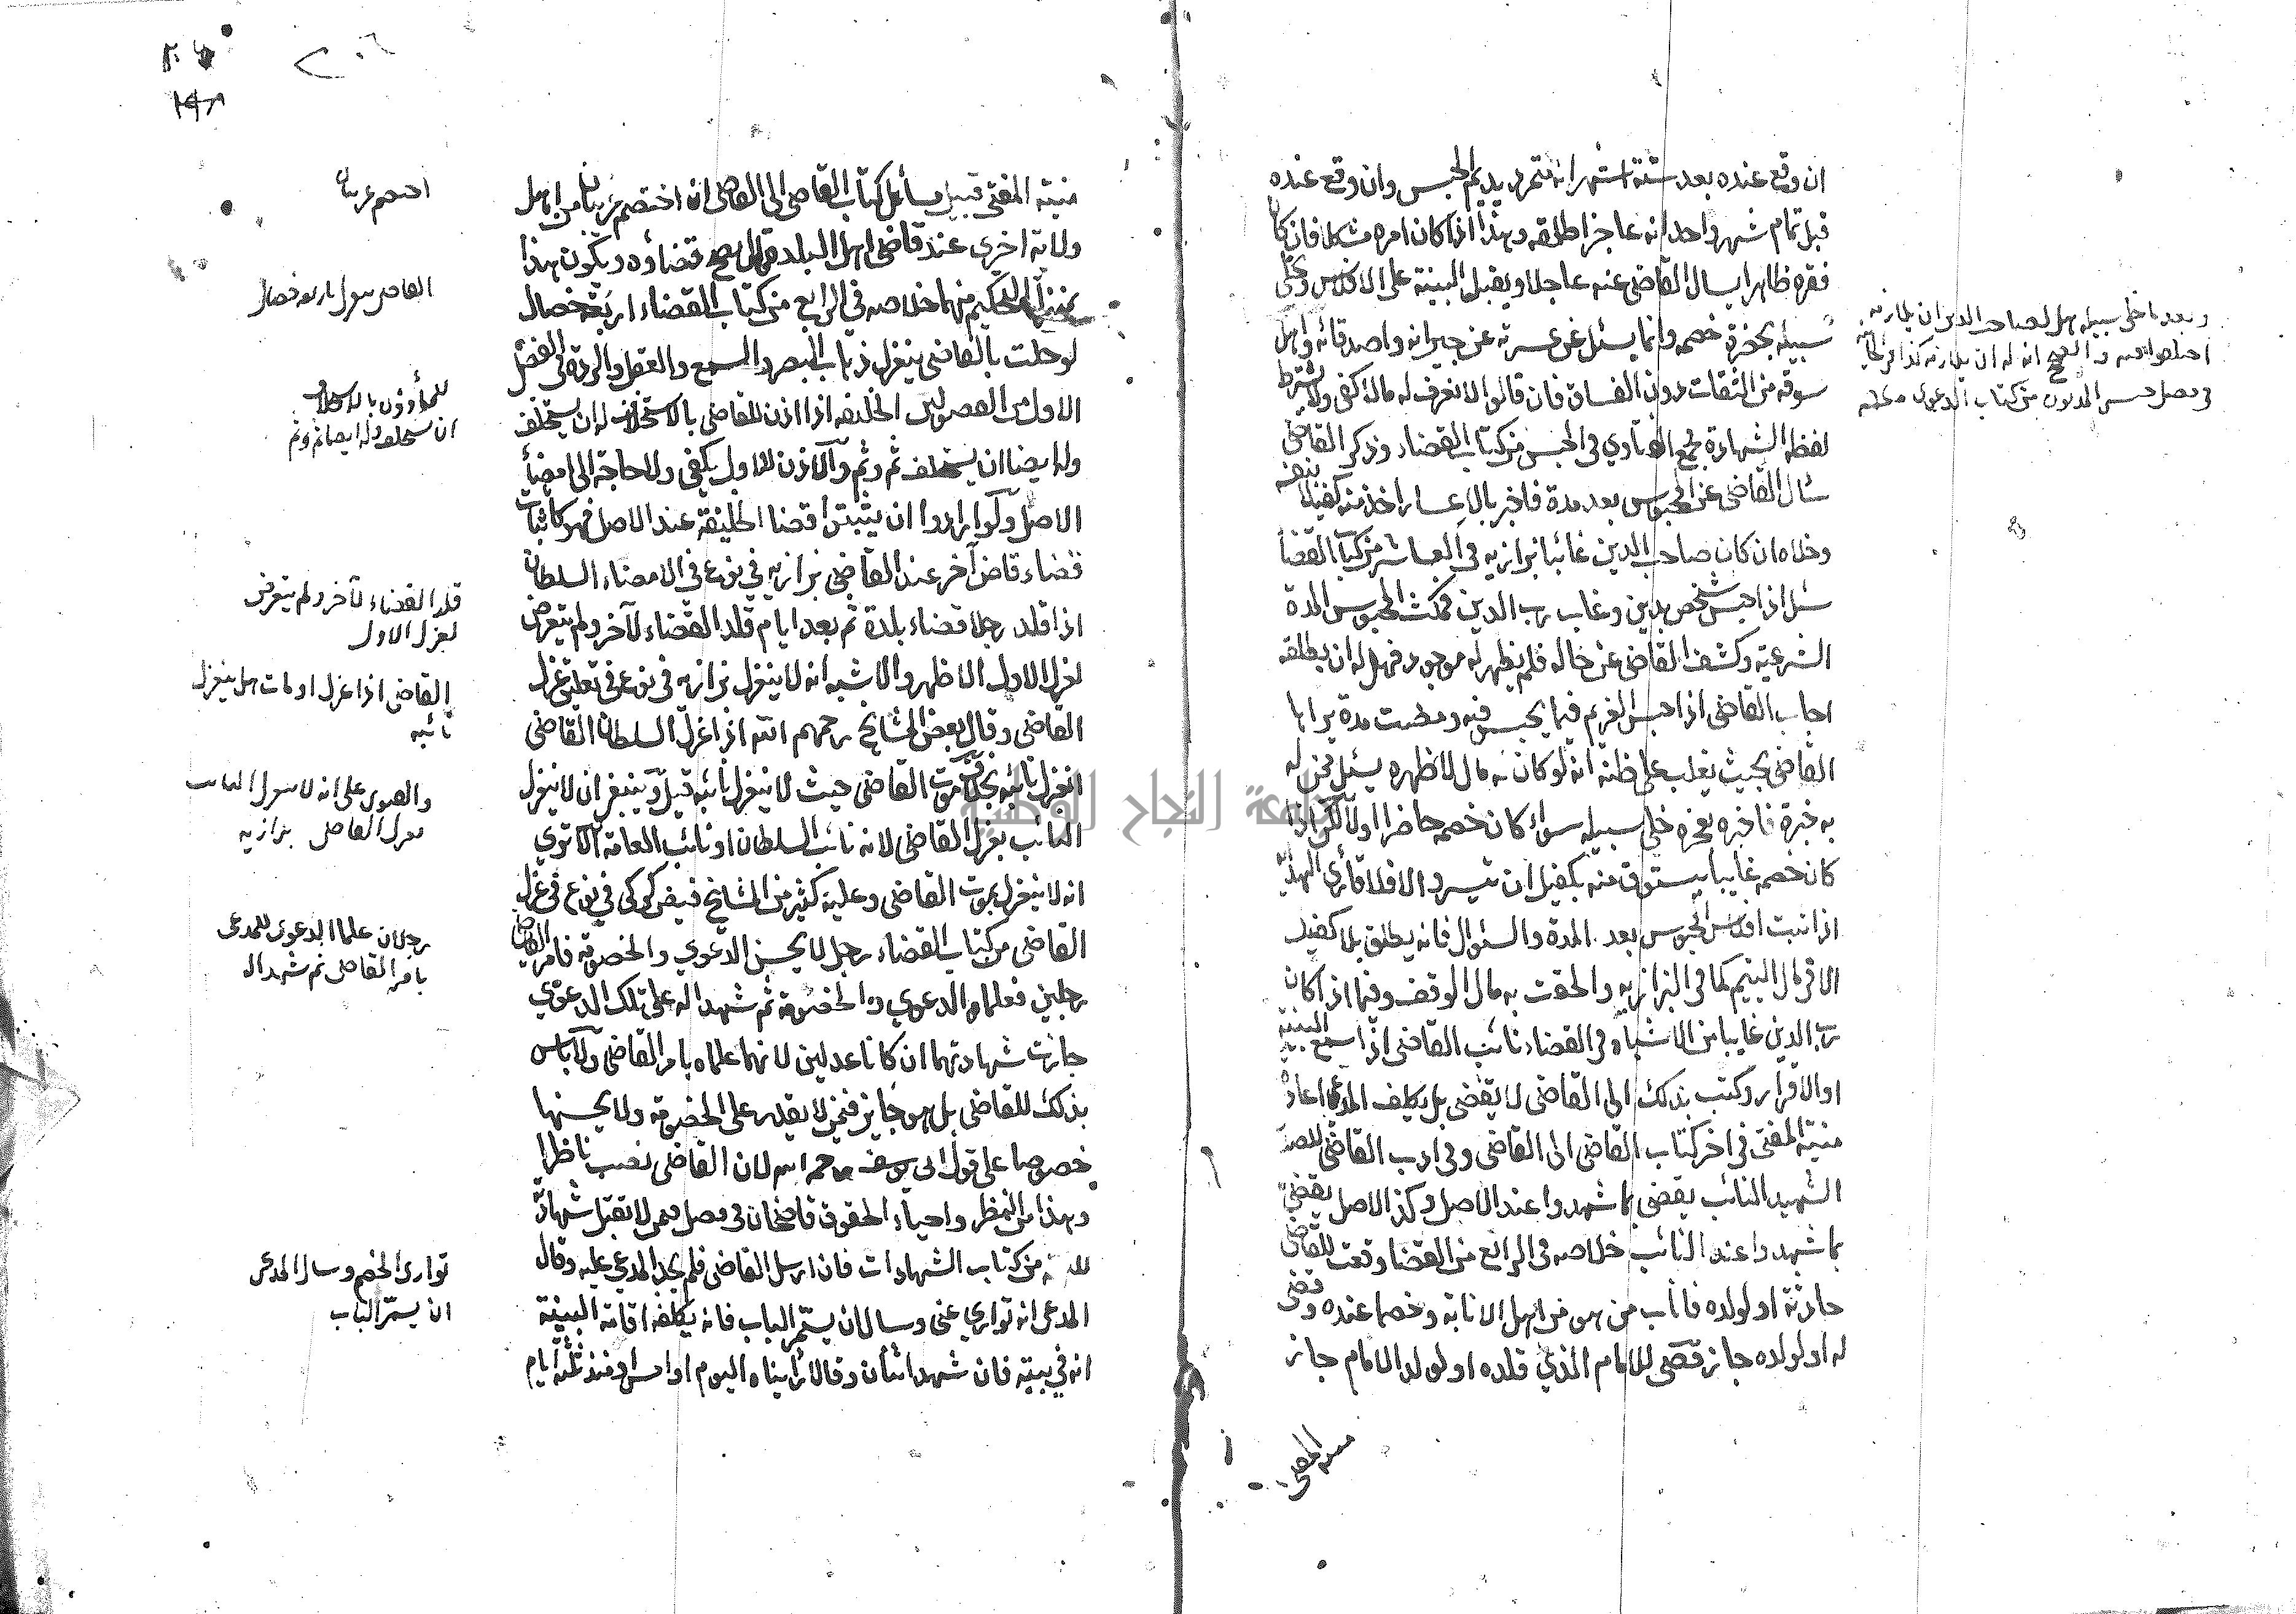 ان وقع عنده بعد ستة اشهر انه متمرد يديم الحبس وان وقع عنده
قبل تمام شهر واحد انه عاجز اطلقه وهذا اذا كان امره مشكلا فان كان
فقره ظاهرا يسال القاضي عنه عاجلا ويقبل البينة على الافلاس ويخلى
سبيله بحضرة خصمه وانما يسئل عن عسرته عن جيرانه واصدقائه واهل
سوقه من الثقات دون الفساق فان قالوا لا نعرف له مالا كفى ولا يشترط
لفظه الشهادة مجمع الفتاوي في الحبس من كتاب القضاء وذكر القاضي
سال القاضي عن المحبوس بعد مدة فاخبر بالاعسار اخذ منه كفيلا بنفسه
وخلاه ان كان صاحب الدين غائبا بزازيه في العاشر من كتاب القضا
سئل اذا حبس شخص بدين وغاب رب الدين فمكث المحبوس المدة
الشرعية وكشف القاضي عن حاله فلم يظهر له موجود فهل له ان يطلقه
اجاب القاضي اذا حبس الغريم فيما يحبس فيه ومضت مدة يراها
القاضي بحيث يغلب على ظنه انه لو كان له مال لاظهره يسئل ممن له
به خبرة فاخبره بعجزه خلى سبيله سواء كان خصمه حاضرا اولا لكن اذا
كان خصمه غايبا يستوثق منه بكفيل ان تيسر والا فلا قارئ الهداية
اذا ثبت افلاس المحبوس بعد المدة والسئوال فانه يطلق بلا كفيل
الا في مال اليتيم كما في البزازيه والحقت به مال الوقف وفيما اذا كان
رب الدين غايبا من الاشباه في القضاء نائب القاضي اذا سمع البينة
او الاقرار وكتب بذلك الى القاضي لا يقضي بل يكلف المدعي اعادة
منية المفتي في اخر كتاب القاضي الى القاضي وفي ادب القاضي للصدر
الشهيد النائب يقضي بما شهدوا عند الاصل وكذا الاصل يقضي
بما شهدوا عند النائب خلاصه في الرابع من القضا وقعت للقاضي
حادثة او لولده فاناب من هو من اهل الانابة وخصما عنده وقضى
له او لولده جاز قضى للامام الذي قلده او لولد الامام جاز
منية المفتي
وبعد ما خلى سبيله هل لصاحب الدين ان يلازمه
اختلفوا فيه والصحيح انه له ان يلازمه كذا في الخانية
في فصل حبس المديون من كتاب الدعوى
٢٠٦
منية المفتي قبيل مسائل كتاب القاضي الى القاضي ان اختصم غريبان من اهل
ولاية اخرى عند قاضي اهل البلدة قال يصح قضاؤه ويكون هذا
بمنزلة التحكيم منهما خلاصه في الرابع من كتاب القضاء اربعة خصال
لو حلت بالقاضي ينعزل ذهاب البصر والسمع والعقل والردة في الفصل
الاول من الفصولين الخليفه اذا اذن للقاضي بالاستخلاف له ان يستخلف
وله ايضا ان يستخلف ثم وثم والاذن للاول يكفي ولا حاجة الى امضاء
الاصل ولو ارادوا ان يثبتوا قضا الخليفة عند الاصل فهو كاثبات
قضاء قاض آخر عند القاضي بزازيه في نوع في الامضاء السلطان
اذا قلد رجلا قضاء بلدة ثم بعد ايام قلد القضاء لآخر ولم يتعرض
لعزل الاول الاظهر والاشبه انه لا ينعزل بزازيه في نوع في تعليق عزل
القاضي وقال بعض المشايخ رحمهم الله اذا عزل السلطان القاضي
انعزل نائبه بخلاف موت القاضي حيث لا ينعزل نائبه قيل وينبغي ان لا ينعزل
النائب بعزل القاضي لانه نائب السلطان او نائب العامة الا ترى
انه لا ينعزل بموت القاضي وعليه كثير من المشايخ فيض كركي في نوع في عزل
القاضي من كتاب القضاء رجل لا يحسن الدعوي والخصومة فامر القاضي
رجلين فعلماه الدعوي والخصومة ثم شهدا له على تلك الدعوي
جازت شهادتهما ان كانا عدلين لانهما علماه بامر القاضي ولا باس
بذلك للقاضي بل هو جايز فيمن لا يقدر على الخصومة ولا يحسنها
خصوصا على قول ابي يوسف رحمه الله لان القاضي نصب ناظرا
وهذا من النظر واحياء الحقوق قاضيخان في فصل فيمن لا تقبل شهادته
من كتاب الشهادات فان ارسل القاضي فلم يجد المدعي عليه وقال
المدعي انه تواري عني وسال ان يسمر الباب فانه يكلفه اقامة البينة
انه في بيته فان شهد اثنان وقالا رايناه اليوم او امس او منذ ثلثة ايام
اختصم غريبان
القاضي ينعزل باربع خصال
للمأذون بالاستخلاف
ان يستخلف وله ايضا ثم وثم
قلد القضاء لآخر ولم يتعرض
لعزل الاول
القاضي اذا عزل او مات هل ينعزل
نائبه
والفتوى على انه لا ينعزل النائب
بعزل القاضي بزازيه
رجلان علما الدعوى للمدعي
بامر القاضي ثم شهدا له
توارى الخصم وسال المدعي
ان يسمر الباب
جامعة النجاح الوطنية